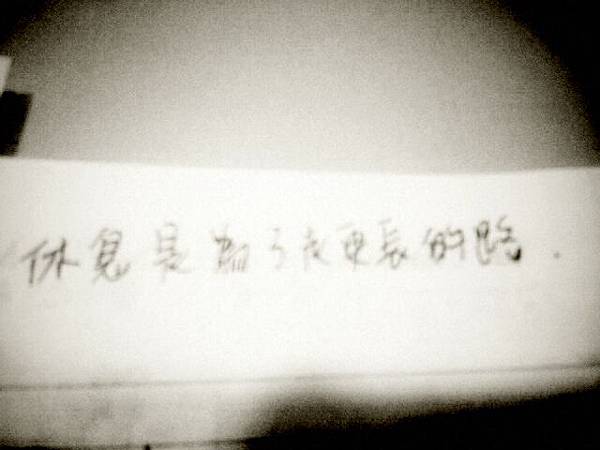 休息是為了走更長的路.